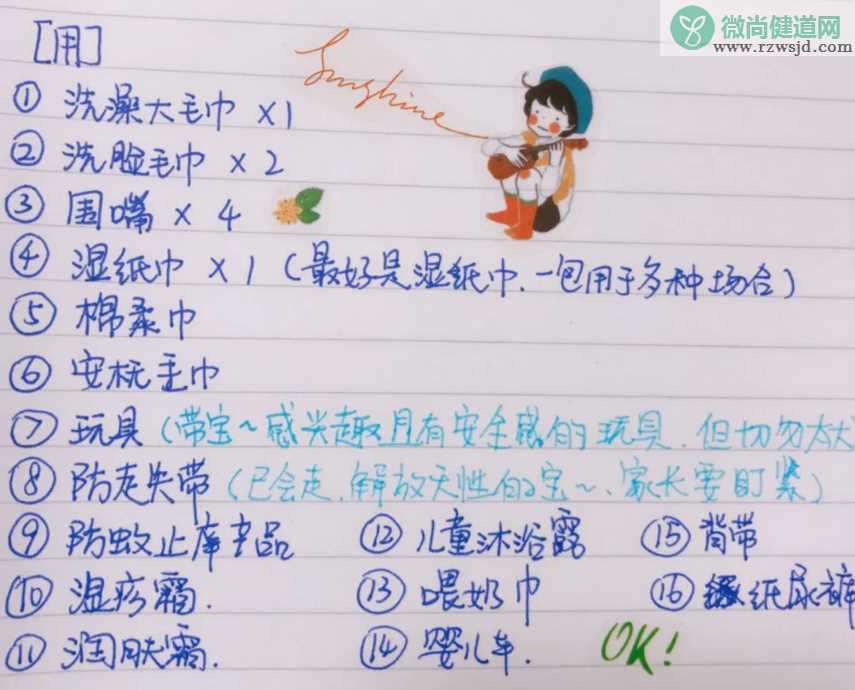 微尚健道网
www.rzwsjd.com
[用]
Sunshine
① 洗澡大毛巾 ×1
② 洗脸毛巾 ×2
③ 围嘴 × 4
④ 湿纸巾 ×1（最好是湿纸巾.一包用于多种场合）
⑤ 棉柔巾
⑥ 安抚毛巾
⑦ 玩具（带宝~感兴趣且有安全感的玩具.但切勿太大
⑧ 防走失带（已会走.解放天性的宝~、家长要盯紧）
⑨ 防蚊止痒产品 ⑫ 儿童沐浴露 ⑮ 背带
⑩ 湿疹霜. ⑬ 喂奶巾 ⑯ 纸尿裤
⑪ 润肤霜. ⑭ 婴儿车. OK!